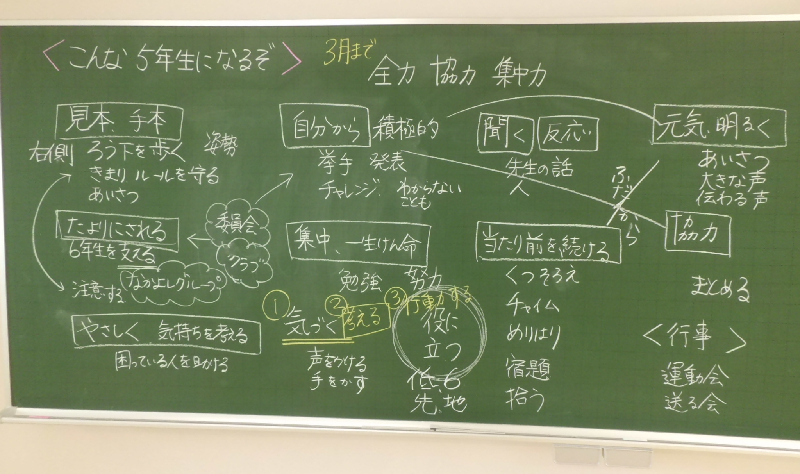 ＜こんな 5年生になるぞ＞
3月まで
全力 協力 集中力
見本、手本
右側 ろう下を歩く 姿勢
きまり ルールを守る
あいさつ
たよりにされる
6年生を支える
委員会
クラブ
注意する
なかよしグループ
やさしく 気持ちを考える
困っている人を助ける
自分から 積極的
挙手 発表
チャレンジ わからない
ことも
集中、一生けん命
勉強 努力
①気づく
②考える
③行動する
声をかける
手をかす
役に
立つ
低、6
先、地
聞く 反応
先生の話
人
当たり前を続ける
くつそろえ
チャイム
めりはり
宿題
拾う
元気、明るく
あいさつ
大きな声
伝わる声
ふだんから
協力
まとめる
＜行事＞
運動会
送る会